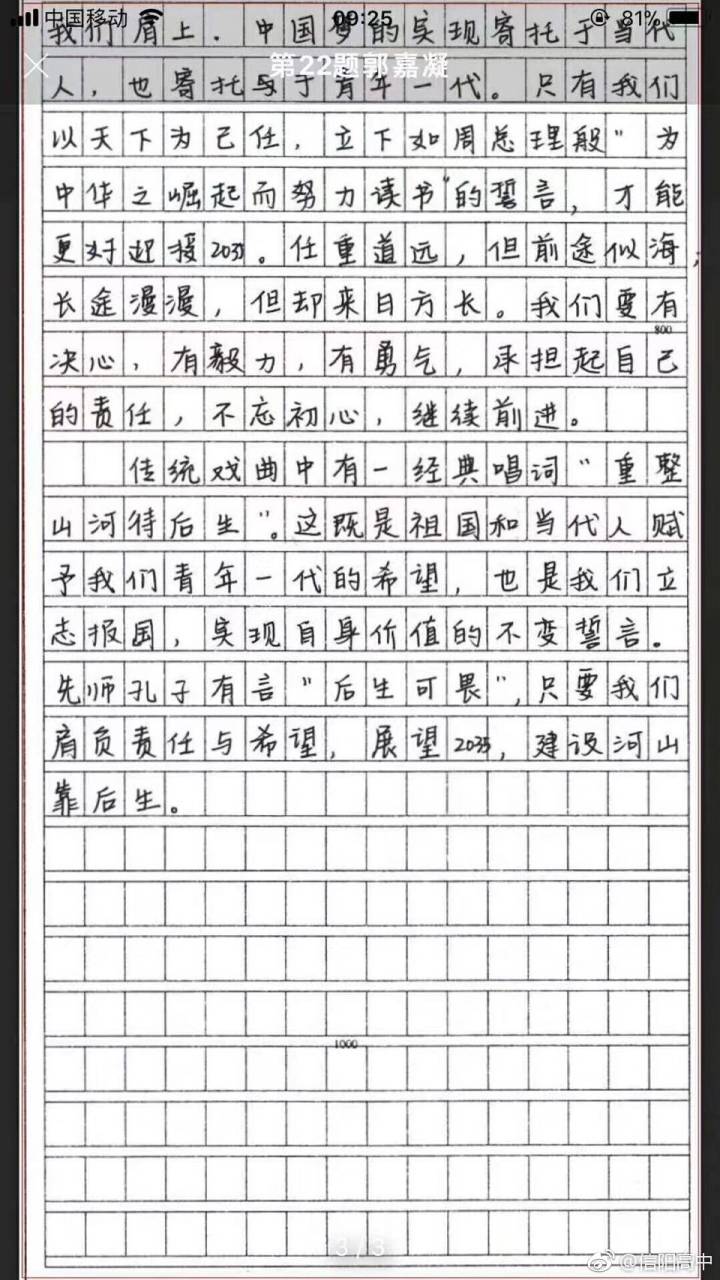 中国移动 09:25 81%
我们肩上．中国梦的实现寄托于当代
第22题郭嘉凝
人，也寄托与于青年一代。只有我们
以天下为己任，立下如周总理般"为
中华之崛起而努力读书"的誓言，才能
更好迎接2035。任重道远，但前途似海；
长途漫漫，但却来日方长。我们要有
800
决心，有毅力，有勇气，承担起自己
的责任，不忘初心，继续前进。
传统戏曲中有一经典唱词"重整
山河待后生"。这既是祖国和当代人赋
予我们青年一代的希望，也是我们立
志报国，实现自身价值的不变誓言。
先师孔子有言"后生可畏"，只要我们
肩负责任与希望，展望2035，建设河山
靠后生。
1000
3/3
@信阳高中